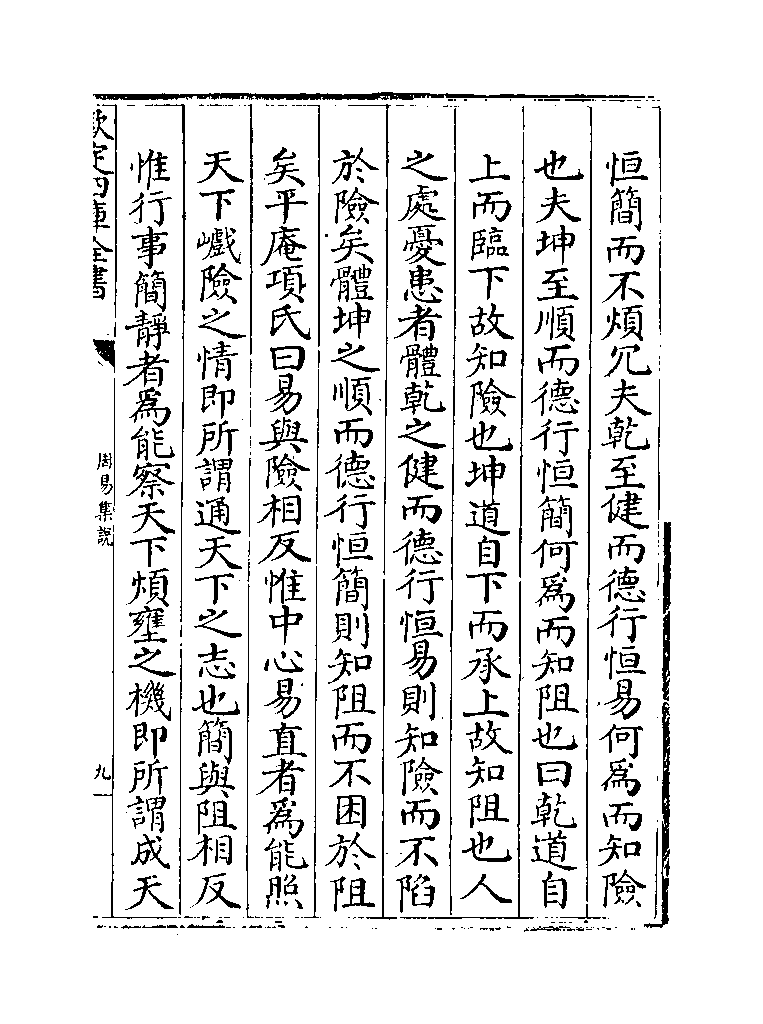 恒簡而不煩冗夫乾至健而德行恒易何爲而知險
也夫坤至順而德行恒簡何爲而知阻也曰乾道自
上而臨下故知險也坤道自下而承上故知阻也人
之處憂患者體乾之健而德行恒易則知險而不陷
於險矣體坤之順而德行恒簡則知阻而不困於阻
矣平庵項氏曰易與險相反惟中心易直者爲能照
天下巇險之情即所謂通天下之志也簡與阻相反
惟行事簡靜者爲能察天下煩壅之機即所謂成天
欽定四庫全書
周易集說
九一